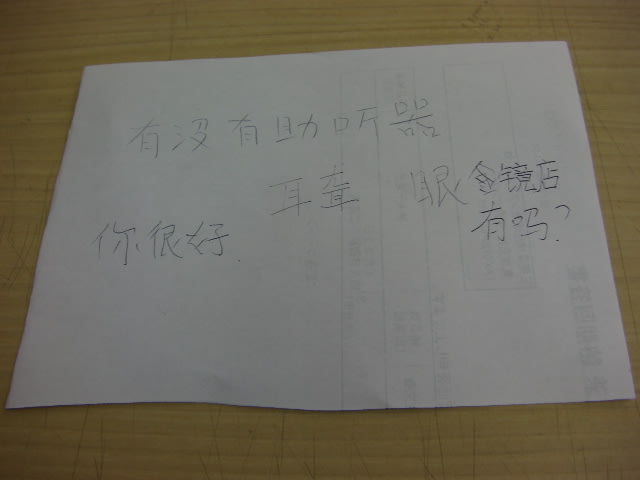 有没有助听器
耳聋 眼镜店
有吗?
你很好.